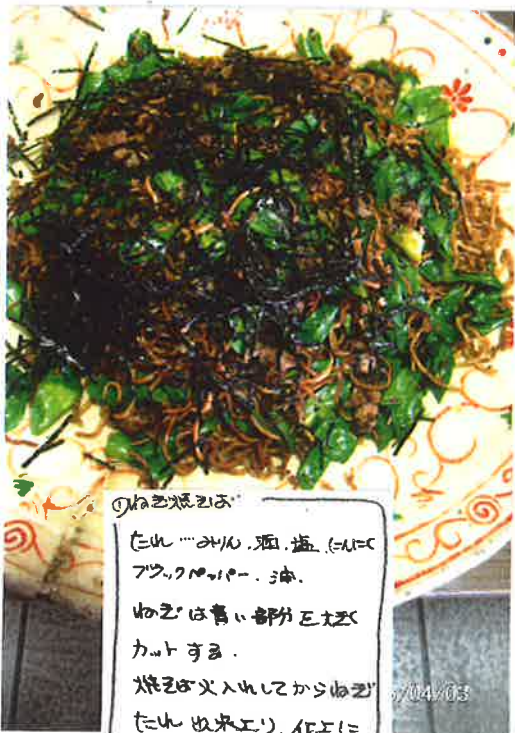 ①ねぎ焼そば
たれ…みりん、酒、塩、にんにく
ブラックペッパー、油、
ねぎは青い部分を大きく
カットする.
焼そば火入れしてからねぎ
たれ
/04/03